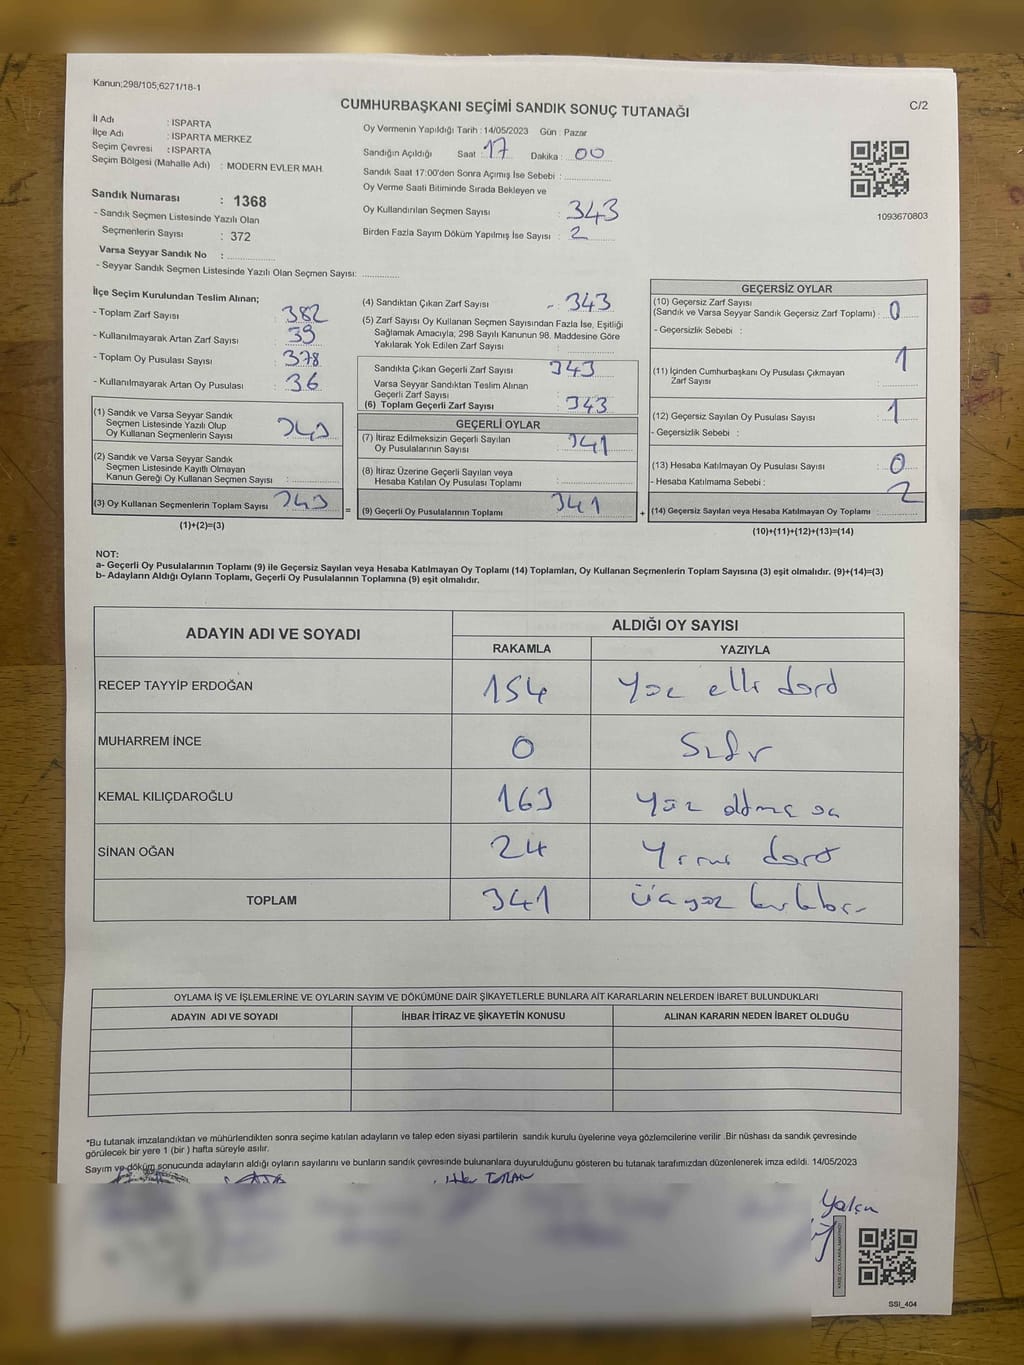 Kanun;298/105;6271/18-1
CUMHURBAŞKANI SEÇİMİ SANDIK SONUÇ TUTANAĞI
C/2
İl Adı : ISPARTA
İlçe Adı : ISPARTA MERKEZ
Seçim Çevresi : ISPARTA
Seçim Bölgesi (Mahalle Adı) : MODERN EVLER MAH.
Sandık Numarası : 1368
- Sandık Seçmen Listesinde Yazılı Olan
Seçmenlerin Sayısı : 372
Varsa Seyyar Sandık No : ..............
- Seyyar Sandık Seçmen Listesinde Yazılı Olan Seçmen Sayısı: ............
Oy Vermenin Yapıldığı Tarih : 14/05/2023 Gün : Pazar
Sandığın Açıldığı Saat : 17 Dakika : 00
Sandık Saat 17:00'den Sonra Açımış İse Sebebi : ..............
Oy Verme Saati Bitiminde Sırada Bekleyen ve
Oy Kullandırılan Seçmen Sayısı : 343
Birden Fazla Sayım Döküm Yapılmış İse Sayısı : 2
1093670803
İlçe Seçim Kurulundan Teslim Alınan;
- Toplam Zarf Sayısı : 382
- Kullanılmayarak Artan Zarf Sayısı : 39
- Toplam Oy Pusulası Sayısı : 378
- Kullanılmayarak Artan Oy Pusulası : 36
(1) Sandık ve Varsa Seyyar Sandık
Seçmen Listesinde Yazılı Olup
Oy Kullanan Seçmenlerin Sayısı : 343
(2) Sandık ve Varsa Seyyar Sandık
Seçmen Listesinde Kayıtlı Olmayan
Kanun Gereği Oy Kullanan Seçmen Sayısı :
(3) Oy Kullanan Seçmenlerin Toplam Sayısı : 343
(1)+(2)=(3)
(4) Sandıktan Çıkan Zarf Sayısı : 343
(5) Zarf Sayısı Oy Kullanan Seçmen Sayısından Fazla İse, Eşitliği
Sağlamak Amacıyla; 298 Sayılı Kanunun 98. Maddesine Göre
Yakılarak Yok Edilen Zarf Sayısı :
Sandıkta Çıkan Geçerli Zarf Sayısı : 343
Varsa Seyyar Sandıktan Teslim Alınan
Geçerli Zarf Sayısı :
(6) Toplam Geçerli Zarf Sayısı : 343
GEÇERLİ OYLAR
(7) İtiraz Edilmeksizin Geçerli Sayılan
Oy Pusulalarının Sayısı : 341
(8) İtiraz Üzerine Geçerli Sayılan veya
Hesaba Katılan Oy Pusulası Toplamı :
= (9) Geçerli Oy Pusulalarının Toplamı : 341
GEÇERSİZ OYLAR
(10) Geçersiz Zarf Sayısı
(Sandık ve Varsa Seyyar Sandık Geçersiz Zarf Toplamı) : 0
- Geçersizlik Sebebi :
(11) İçinden Cumhurbaşkanı Oy Pusulası Çıkmayan
Zarf Sayısı : 1
(12) Geçersiz Sayılan Oy Pusulası Sayısı : 1
- Geçersizlik Sebebi :
(13) Hesaba Katılmayan Oy Pusulası Sayısı : 0
- Hesaba Katılmama Sebebi :
+ (14) Geçersiz Sayılan veya Hesaba Katılmayan Oy Toplamı : 2
(10)+(11)+(12)+(13)=(14)
NOT:
a- Geçerli Oy Pusulalarının Toplamı (9) ile Geçersiz Sayılan veya Hesaba Katılmayan Oy Toplamı (14) Toplamları, Oy Kullanan Seçmenlerin Toplam Sayısına (3) eşit olmalıdır. (9)+(14)=(3)
b- Adayların Aldığı Oyların Toplamı, Geçerli Oy Pusulalarının Toplamına (9) eşit olmalıdır.
ADAYIN ADI VE SOYADI ALDIĞI OY SAYISI
RAKAMLA YAZIYLA
RECEP TAYYİP ERDOĞAN 154 Yüz elli dört
MUHARREM İNCE 0 Sıfır
KEMAL KILIÇDAROĞLU 163 Yüz altmış üç
SİNAN OĞAN 24 Yirmi dört
TOPLAM 341 üçyüz kırkbir
OYLAMA İŞ VE İŞLEMLERİNE VE OYLARIN SAYIM VE DÖKÜMÜNE DAİR ŞİKAYETLERLE BUNLARA AİT KARARLARIN NELERDEN İBARET BULUNDUKLARI
ADAYIN ADI VE SOYADI İHBAR İTİRAZ VE ŞİKAYETİN KONUSU ALINAN KARARIN NEDEN İBARET OLDUĞU
*Bu tutanak imzalandıktan ve mühürlendikten sonra seçime katılan adayların ve talep eden siyasi partilerin sandık kurulu üyelerine veya gözlemcilerine verilir .Bir nüshası da sandık çevresinde
görülecek bir yere 1 (bir ) hafta süreyle asılır.
Sayım ve döküm sonucunda adayların aldığı oyların sayılarını ve bunların sandık çevresinde bulunanlara duyurulduğunu gösteren bu tutanak tarafımızdan düzenlenerek imza edildi. 14/05/2023
Yalçın
SSI_404